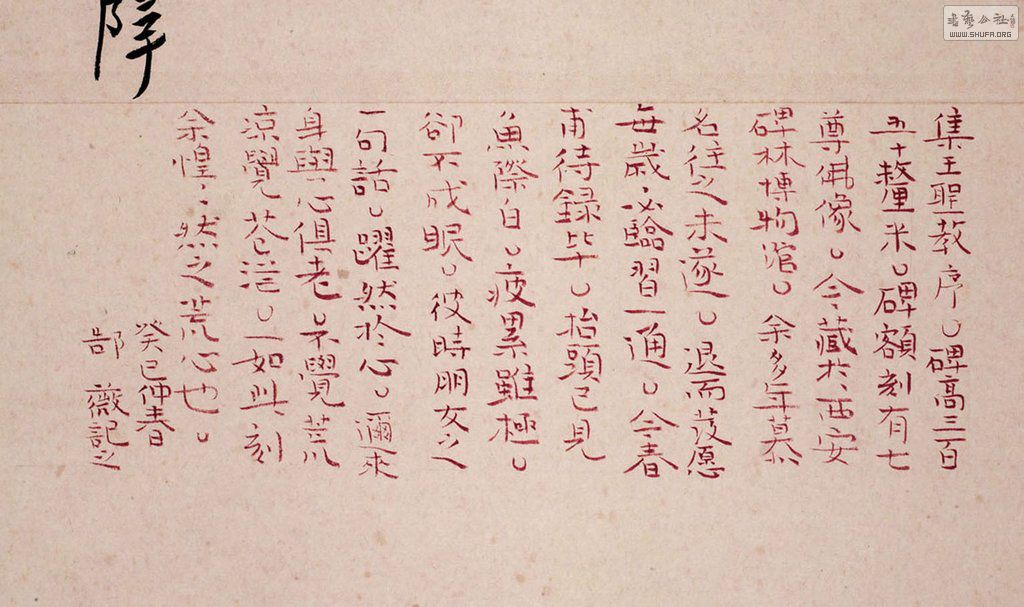 障
集王聖教序。碑高三百
五十釐米。碑額刻有七
尊佛像。今藏於西安
碑林博物馆。余多年慕
名往之未遂。退而发愿
每歲必臨習一通。今春
甫待録毕。抬頭已見
魚際白。疲累雖極。
卻不成眠。彼時朋友之
一句話。躍然於心。邇來
身與心俱老。不覺荒
凉覺苍茫。一如此刻
余惶惶然之荒心也。
癸巳仲春
郜薇記之
書藝公社
WWW.SHUFA.ORG